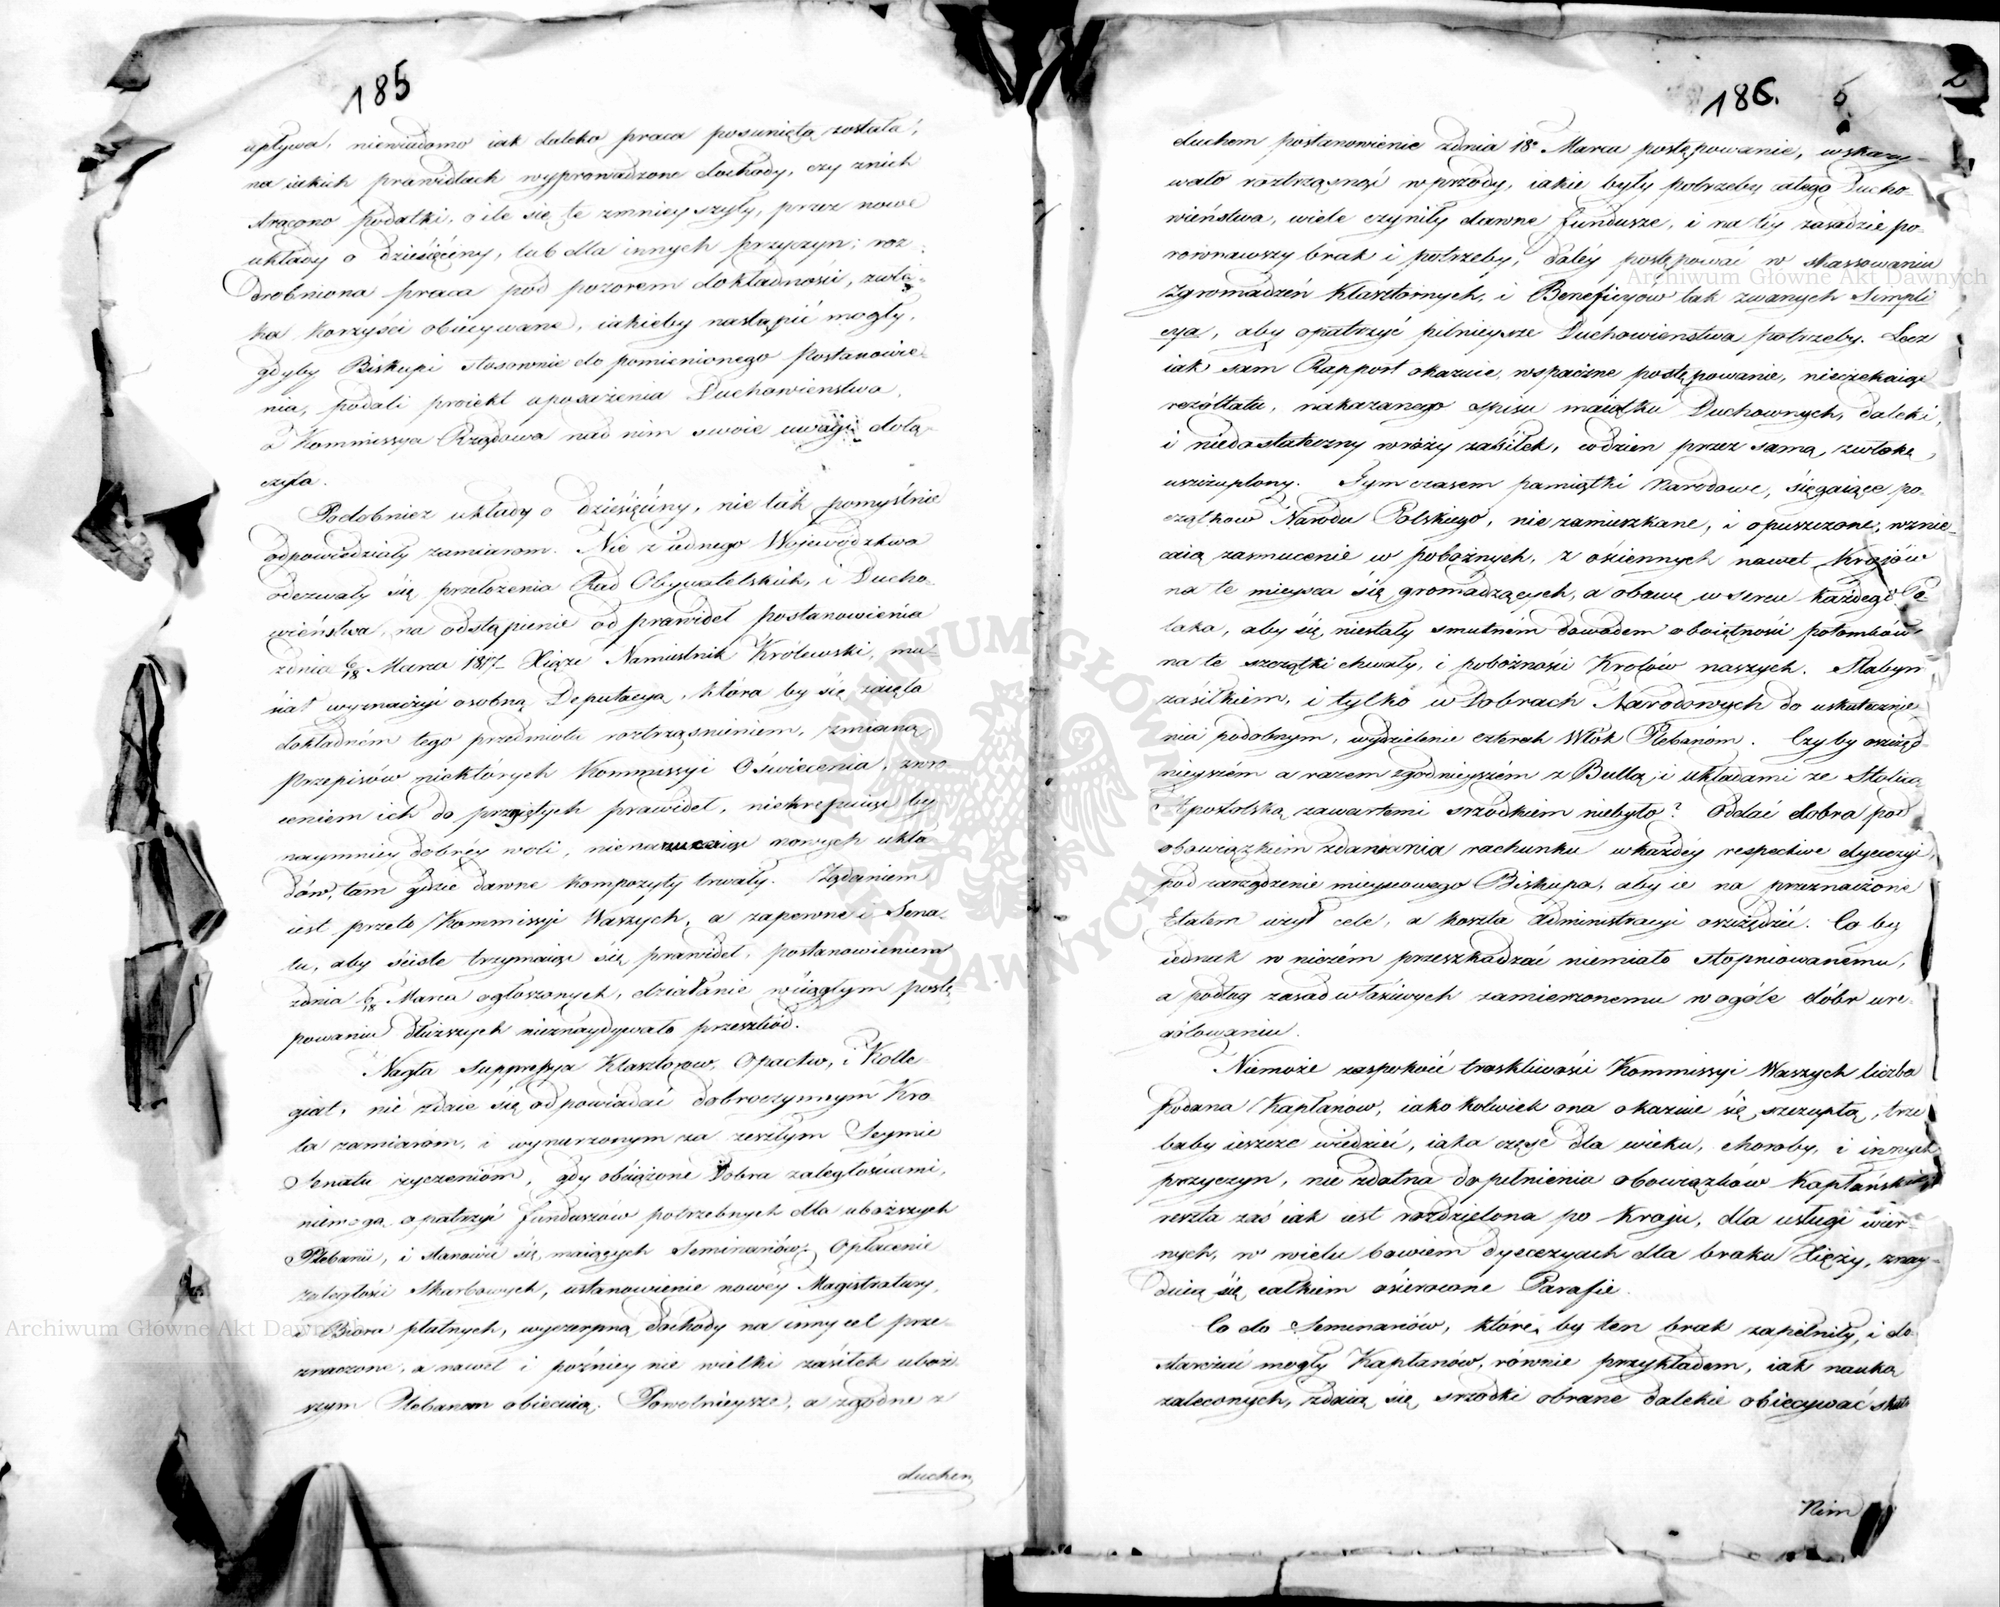 185
upływa, niewiadomo iak daleko praca posunięta została,
na iakich prawidłach wyprowadzone dochody, czy znich
strącono podatki, o ile się te zmnieyszyły, przez nowe
układy o dziesięciny, lub dla innych przyczyn; roz-
drobniona praca pod pozorem dokładności, zwłó-
ka korzyści obiecywane, iakieby nastąpić mogły,
gdyby Biskupi stosownie do pomienionego Postanowie-
nia, podali proiekt uposażenia Duchowieństwa,
a Kommissya Rządowa nad nim swoie uwagi dołą-
czyła.
Podobnież układy o dziesięciny, nie tak pomyślnie
odpowiedziały zamiarom. Nie z iednego Województwa
odezwały się przełożenia Rad Obywatelskich, i Ducho-
wieństwa, na odstąpienie od prawideł postanowienia
zdnia 6/18 Marca 1817 Xiąże Namiestnik Królewski, mu-
siał wyznaczyć osobną Deputacyą, która by się zaięła
dokładném tego przedmiotu roztrząśnieniem, zmianą
przepisów niektórych Kommissyi Oświecenia, zwró-
ceniem ich do przyiętych prawideł, niekrępuiąc by
naymniey dobrey woli, nienarzucaiąc nowych ukła-
dów, tam gdzie dawne kompozyty trwały. Żądaniem
iest przeto Kommissyi Waszych, a zapewne i Sena-
tu, aby ściśle trzymaiąc się prawideł, postanowieniem
zdnia 6/18 Marca ogłoszonych, działanie wciągłym postę-
powaniu dłuższych nieznaydywało przeszkód.
Nagła Suppressya Klasztorow, Opactw, i Kolle-
giat, nie zdaie się odpowiadać dobroczynnym Kró-
la zamiaróm, i wynurzonym na zeszłym Seymie
Senatu życzeniom, gdy obciążone Dobra zaległościami,
niemogą opatrzyć funduszów potrzebnych dla uboższych
Plebanii, i stanowić się maiących Seminariów. Opłacenie
zaległości Skarbowych, ustanowienie nowéy Magistratury,
i Biora płatnych, wyczerpną dochody na inny cel prze-
znaczone, a nawet i poźniey nie wielki zasiłek uboż-
szym Plebanom obiecuią. Powolnieysze, a zgodne z
duchem
186. 5 2
duchem postanowienie zdnia 18º Marca postępowanie, wskazy-
wało roztrząsnąć wprzódy, iakie były potrzeby całego Ducho-
wieństwa, wiele czyniły dawne fundusze, i na téy zasadzie po-
rownawszy brak i potrzeby, daléy postępować w skassowaniu
Zgromadzeń Klasztornych, i Beneficyow tak zwanych Simpli
cya, aby opatrzyć pilnieysze Duchowienstwa potrzeby. Lecz
iak sam Rapport okazuie, wspaczne postępowanie, nieczekaiąc
rezóltatu, nakazanego spisu maiątku Duchownych, daleki,
i niedostateczny wróży zasiłek, codzien przez samą zwłokę,
uszczuplony. Tymczasem pamiątki Narodowe, sięgaiące po-
czątkow Narodu Polskiego, nie zamieszkane, i opuszczone, wznie-
caią zasmucenie w pobożnych, z ościennych nawet Kraiów
na te mieysca się gromadzących, a obawę w sercu każdego Po-
laka, aby się niestały smutném dowodem oboiętności potomków
na te szczątki chwały, i pobożności Krolów naszych. Słabym
zasiłkiem, i tylko w Dobrach Narodowych do uskutecznie-
nia podobnym, wydzielenie czterech Włók Plebanóm. Czy by oszczęd-
nieyszém a razem zgodnieyszém z Bullą, i układami ze Stolicą
Apostolską zawartemi srzodkiem niebyło? Oddać dobra pod
obowiązkiem zdawania rachunku wkażdéy respective dyecezyi,
pod zarządzenie mieyscowego Biskupa, aby ie na przeznaczone
Etatem użył cele, a koszta administracyi oszczędzić. Co by
iednak w niczém przeszkadzać niemiało stopniowanemu,
a podług zasad właściwych zamierzonemu w ogóle dóbr ure-
gulowaniu.
Niemoże zaspokoić troskliwości Kommissyi Waszych liczba
podana Kapłanów, iakokolwiek ona okazuie się szczupłą, trze-
baby ieszcze wiedzieć, iaka część dla wieku, choroby, i innych
przyczyn, nie zdatna dopełnienia obowiązków Kapłańskich,
reszta zaś iak iest rozdzielona po Kraju, dla usługi wier-
nych, w wielu bowiem dyecezyach dla braku Xięży, znay-
duią się całkiem osierocone Parafie.
Co do Seminariów, które by ten brak zapełniły, i do-
starczać mogły Kapłanów, równie przykładem, iak nauką
zaleconych, zdaią się srzodki obrane dalekie obiecywać skut
Nim
Archiwum Główne Akt Dawnych
Archiwum Główne Akt Dawnych
ARCHIWUM GŁÓWNE AKT DAWNYCH